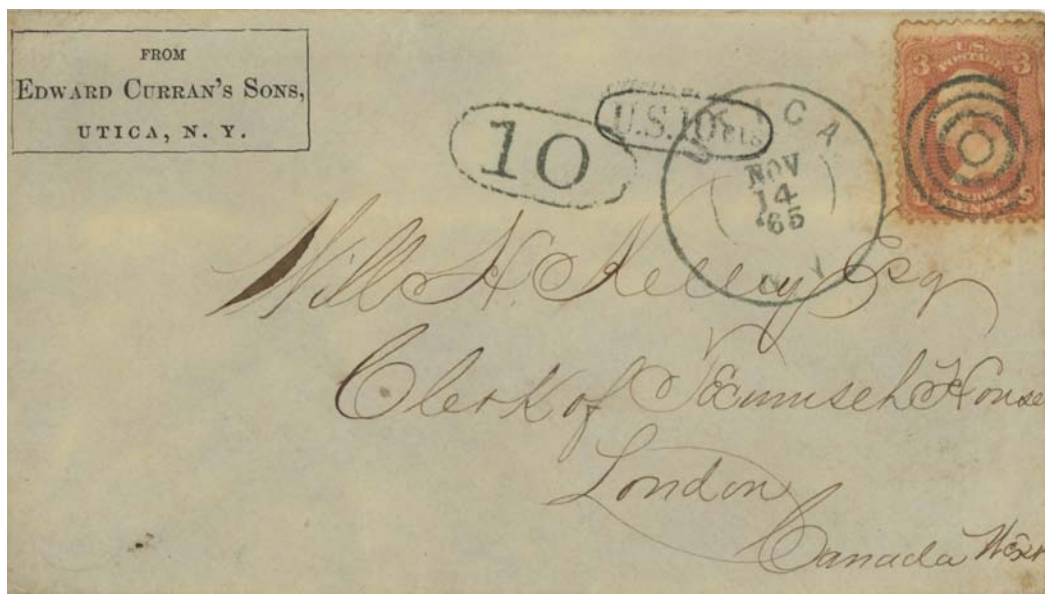 FROM
EDWARD CURRAN'S SONS,
UTICA, N. Y.
10
U.S. 10 cts
UTICA
NOV
14
65
N. Y.
U.S.
POSTAGE
3 3
Will H. Kelley Esq
Clerk of Tecumseh House
London
Canada West